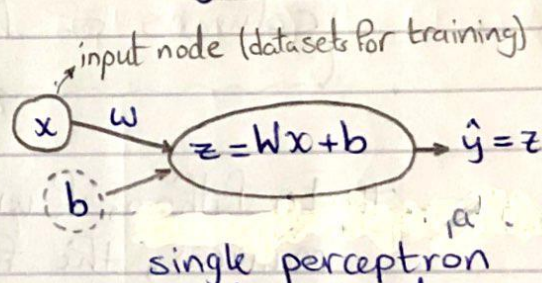 input node (datasets for training)
x w z = Wx + b ŷ = z
b
a
single perceptron